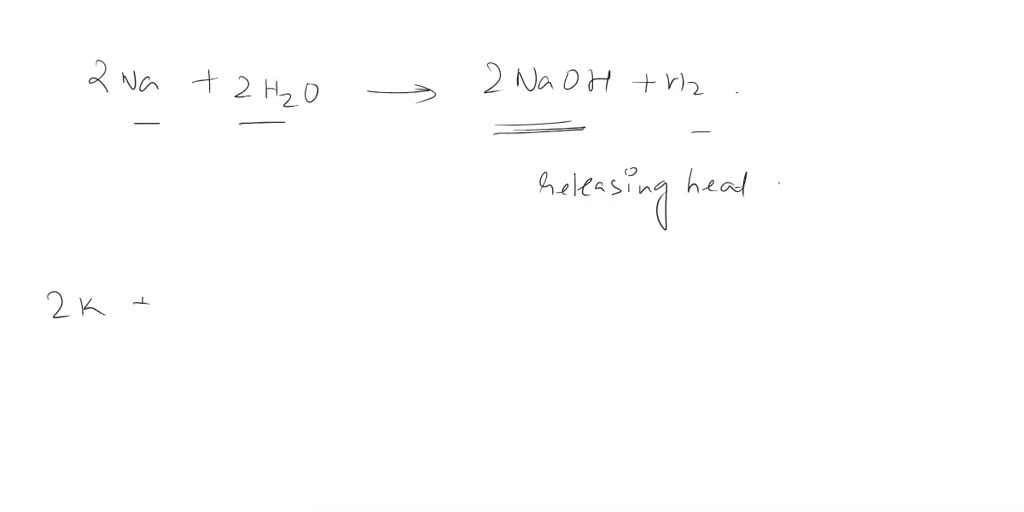 2 Na + 2 H₂O → 2 NaOH + H₂ .
releasing heat .
2K +